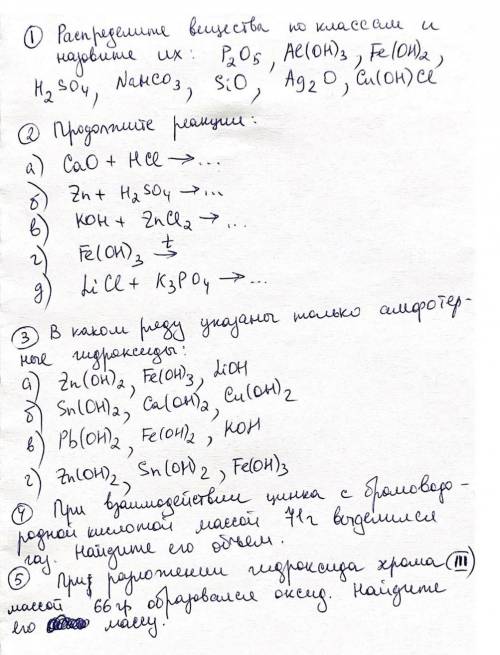 ① Распределите вещества по классам и
назовите их: P₂O₅, Al(OH)₃, Fe(OH)₂,
H₂SO₄, NaHCO₃, SiO, Ag₂O, Cu(OH)Cl
② Продолжите реакции:
а) CaO + HCl →...
б) Zn + H₂SO₄ →...
в) KOH + ZnCl₂ →...
г) Fe(OH)₃ t→
д) LiCl + K₃PO₄ →...
③ В каком ряду указаны только амфотер-
ные гидроксиды:
а) Zn(OH)₂, Fe(OH)₃, LiOH
б) Sn(OH)₂, Ca(OH)₂, Cu(OH)₂
в) Pb(OH)₂, Fe(OH)₂, KOH
г) Zn(OH)₂, Sn(OH)₂, Fe(OH)₃
④ При взаимодействии цинка с бромоводо-
родной кислотой массой 71г выделился
газ. Найдите его объём.
⑤ При разложении гидроксида хрома (III)
массой 66гр образовался оксид. Найдите
его массу.